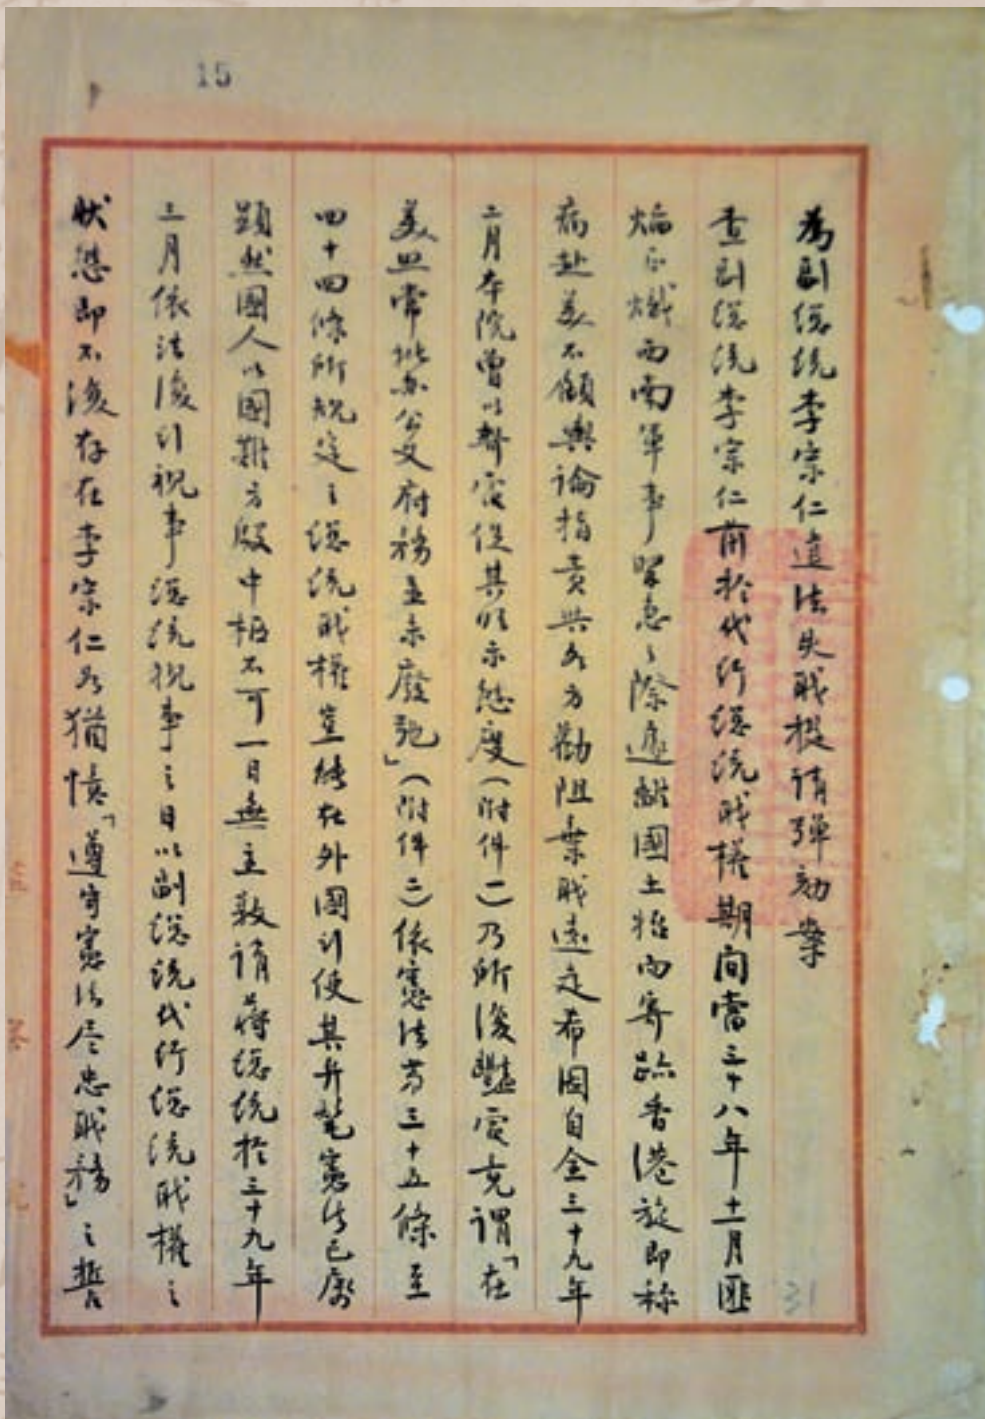 15
為副總統李宗仁違法失職提請彈劾案
查副總統李宗仁前於代行總統職權期間當三十八年十一月匪
焰正熾西南軍事緊急之際遽離國土始而寄跡香港旋即称
病赴美不顧輿論指責與各方勸阻棄職遠走希圖自全三十九年
二月本院曾以電促其明示態度(附件一)乃所復電竟謂「在
美照常批办公文府務並未廢弛」(附件二)依憲法第三十五條至
四十四條所規定之總統職權豈能在外國行使其弁髦憲法已属
顯然國人以國難方殷中樞不可一日無主敦請蔣總統於三十九年
三月依法復行視事總統視事之日以副總統代行總統職權之
狀態即不復存在李宗仁如猶憶「遵守憲法尽忠職務」之誓
31